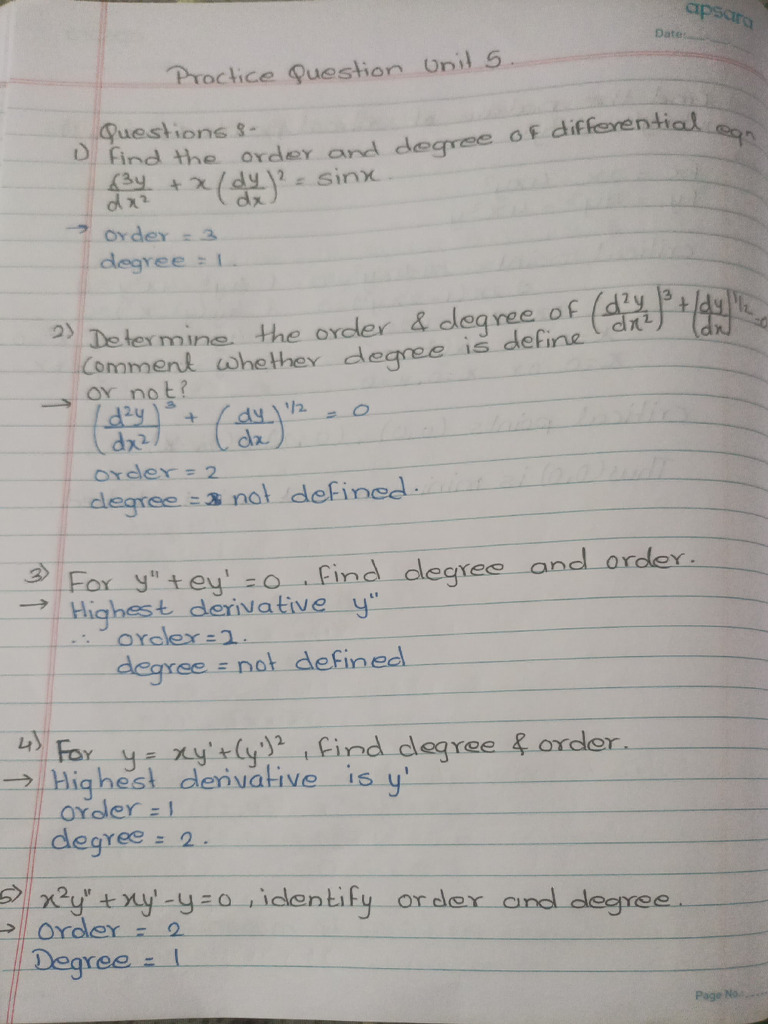 apsara
Date:
Practice Question Unit 5.
Questions :-
1) Find the order and degree of differential eqn
d3y/dx² + x(dy/dx)² = sinx.
→ order = 3
degree = 1.
2) Determine the order & degree of (d²y/dx²)³ + (dy/dx)^1/2 = 0
Comment whether degree is define
or not?
→ (d²y/dx²)³ + (dy/dx)^1/2 = 0
order = 2
degree = not defined.
3) For y" + ey' = 0, find degree and order.
→ Highest derivative y"
∴ order = 2.
degree = not defined
4) For y = xy' + (y')², find degree & order.
→ Highest derivative is y'
order = 1
degree = 2.
5) x²y" + xy' - y = 0, identify order and degree.
→ order = 2
Degree = 1
Page No.: